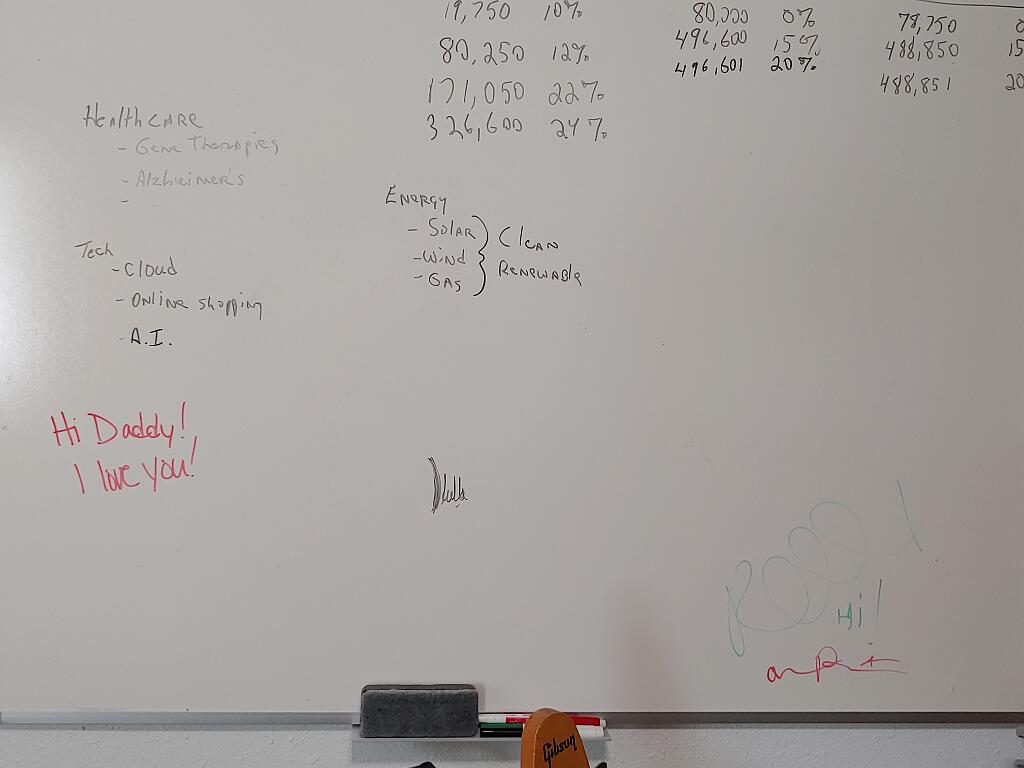 19,750 10%
80,250 12%
171,050 22%
326,600 24%
80,000 0%
496,600 15%
496,601 20%
78,750 0
488,850 15
488,851 20
HealthCARE
- Gene Therapies
- Alzheimer's
-
Tech
- Cloud
- Online shopping
- A.I.
Energy
- Solar
- Wind
- Gas
Clean
Renewable
Hi Daddy!
I love you!
Hi!
Gibson